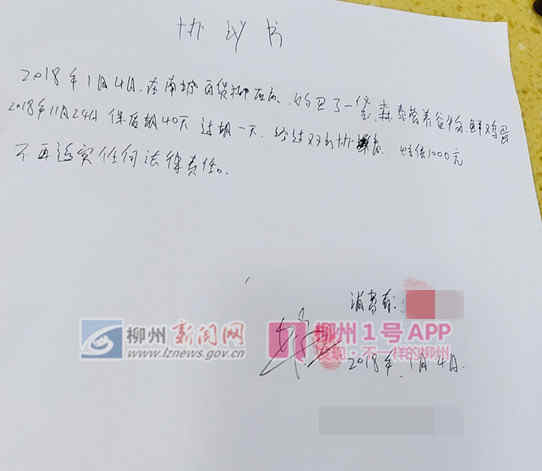 协议书
2018年1月4日,在南城百货柳石店,购买了一盒,森泰营养谷物鲜鸡蛋
2018年11月24日 保质期40天 过期一天,经过双方协商,赔偿1000元
不再追究任何法律责任。
消费者:
柳州新闻网
www.lznews.gov.cn
柳州1号APP
发现·不一样的柳州
2018年,1月4日.